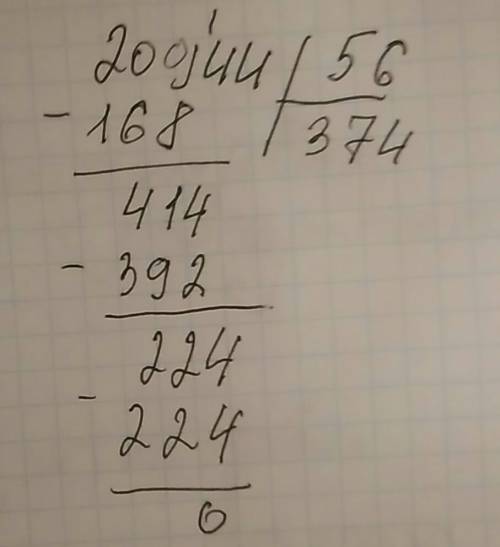 20944 56
- 168 374
414
- 392
224
- 224
0